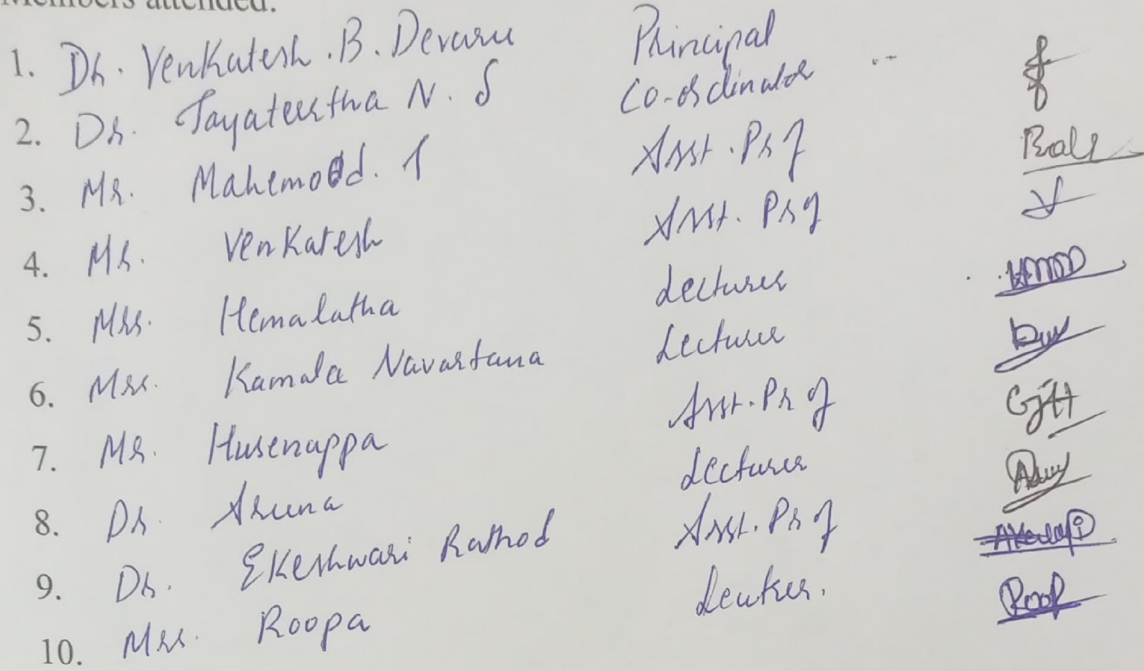 Members attended:
1. Dr. Venkatesh .B. Devaru Principal
2. Dr. Jayateertha N. S Co-ordinator
3. Mr. Mahemood. Asst. Prof
4. Mr. Venkatesh Asst. Prof
5. Mrs. Hemalatha Lecturer
6. Mrs. Kamala Navartana Lecturer
7. Mr. Husenappa Asst. Prof
8. Dr. Aruna Lecturer
9. Dr. Ekeshwari Rathod Asst. Prof
10. Mrs. Roopa